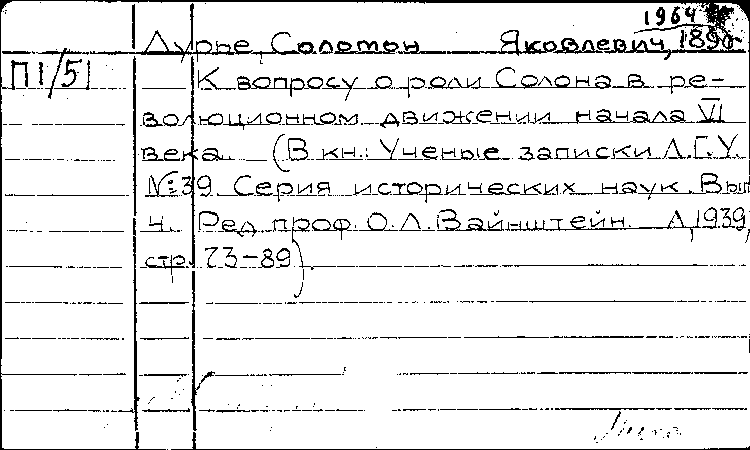 1964
Лурье, Соломон Яковлевич, 1890-
П1/51
К вопросу о роли Солона в ре-
волюционном движении начала VI
века. (В кн.: Ученые записки Л.Г.У.
№:39. Серия исторических наук. Вып
4. Ред проф. О.Л.Вайнштейн. Л,1939,
стр. 73-89).